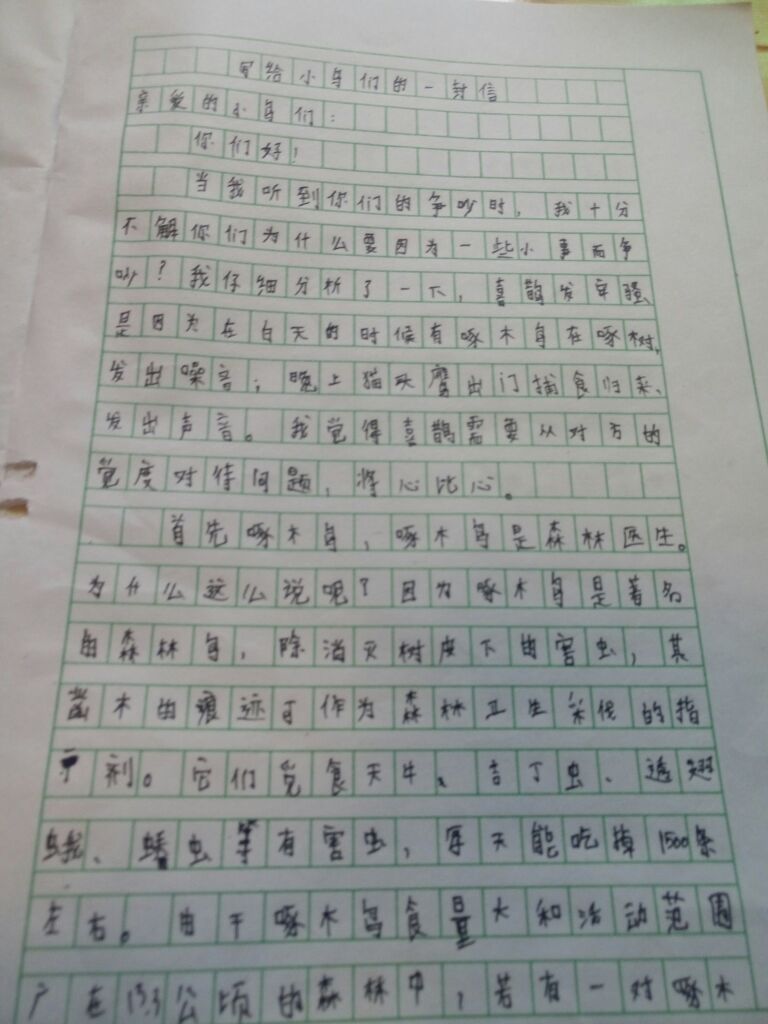 写给小鸟们的一封信
亲爱的小鸟们：
你们好！
当我听到你们的争吵时，我十分
不解你们为什么要因为一些小事而争
吵？我仔细分析了一下，喜鹊发牢骚
是因为在白天的时候有啄木鸟在啄树，
发出噪音；晚上猫头鹰出门捕食归来，
发出声音。我觉得喜鹊需要从对方的
觉度对待问题，将心比心。
首先啄木鸟，啄木鸟是森林医生。
为什么这么说呢？因为啄木鸟是著名
的森林鸟，除消灭树皮下的害虫，其
凿木的痕迹可作为森林卫生采伐的指
示剂。它们觅食天牛、吉丁虫、透翅
蛾、蝽虫等有害虫，每天能吃掉1500条
左右。由于啄木鸟食量大和活动范围
广在13.3公顷的森林中，若有一对啄木